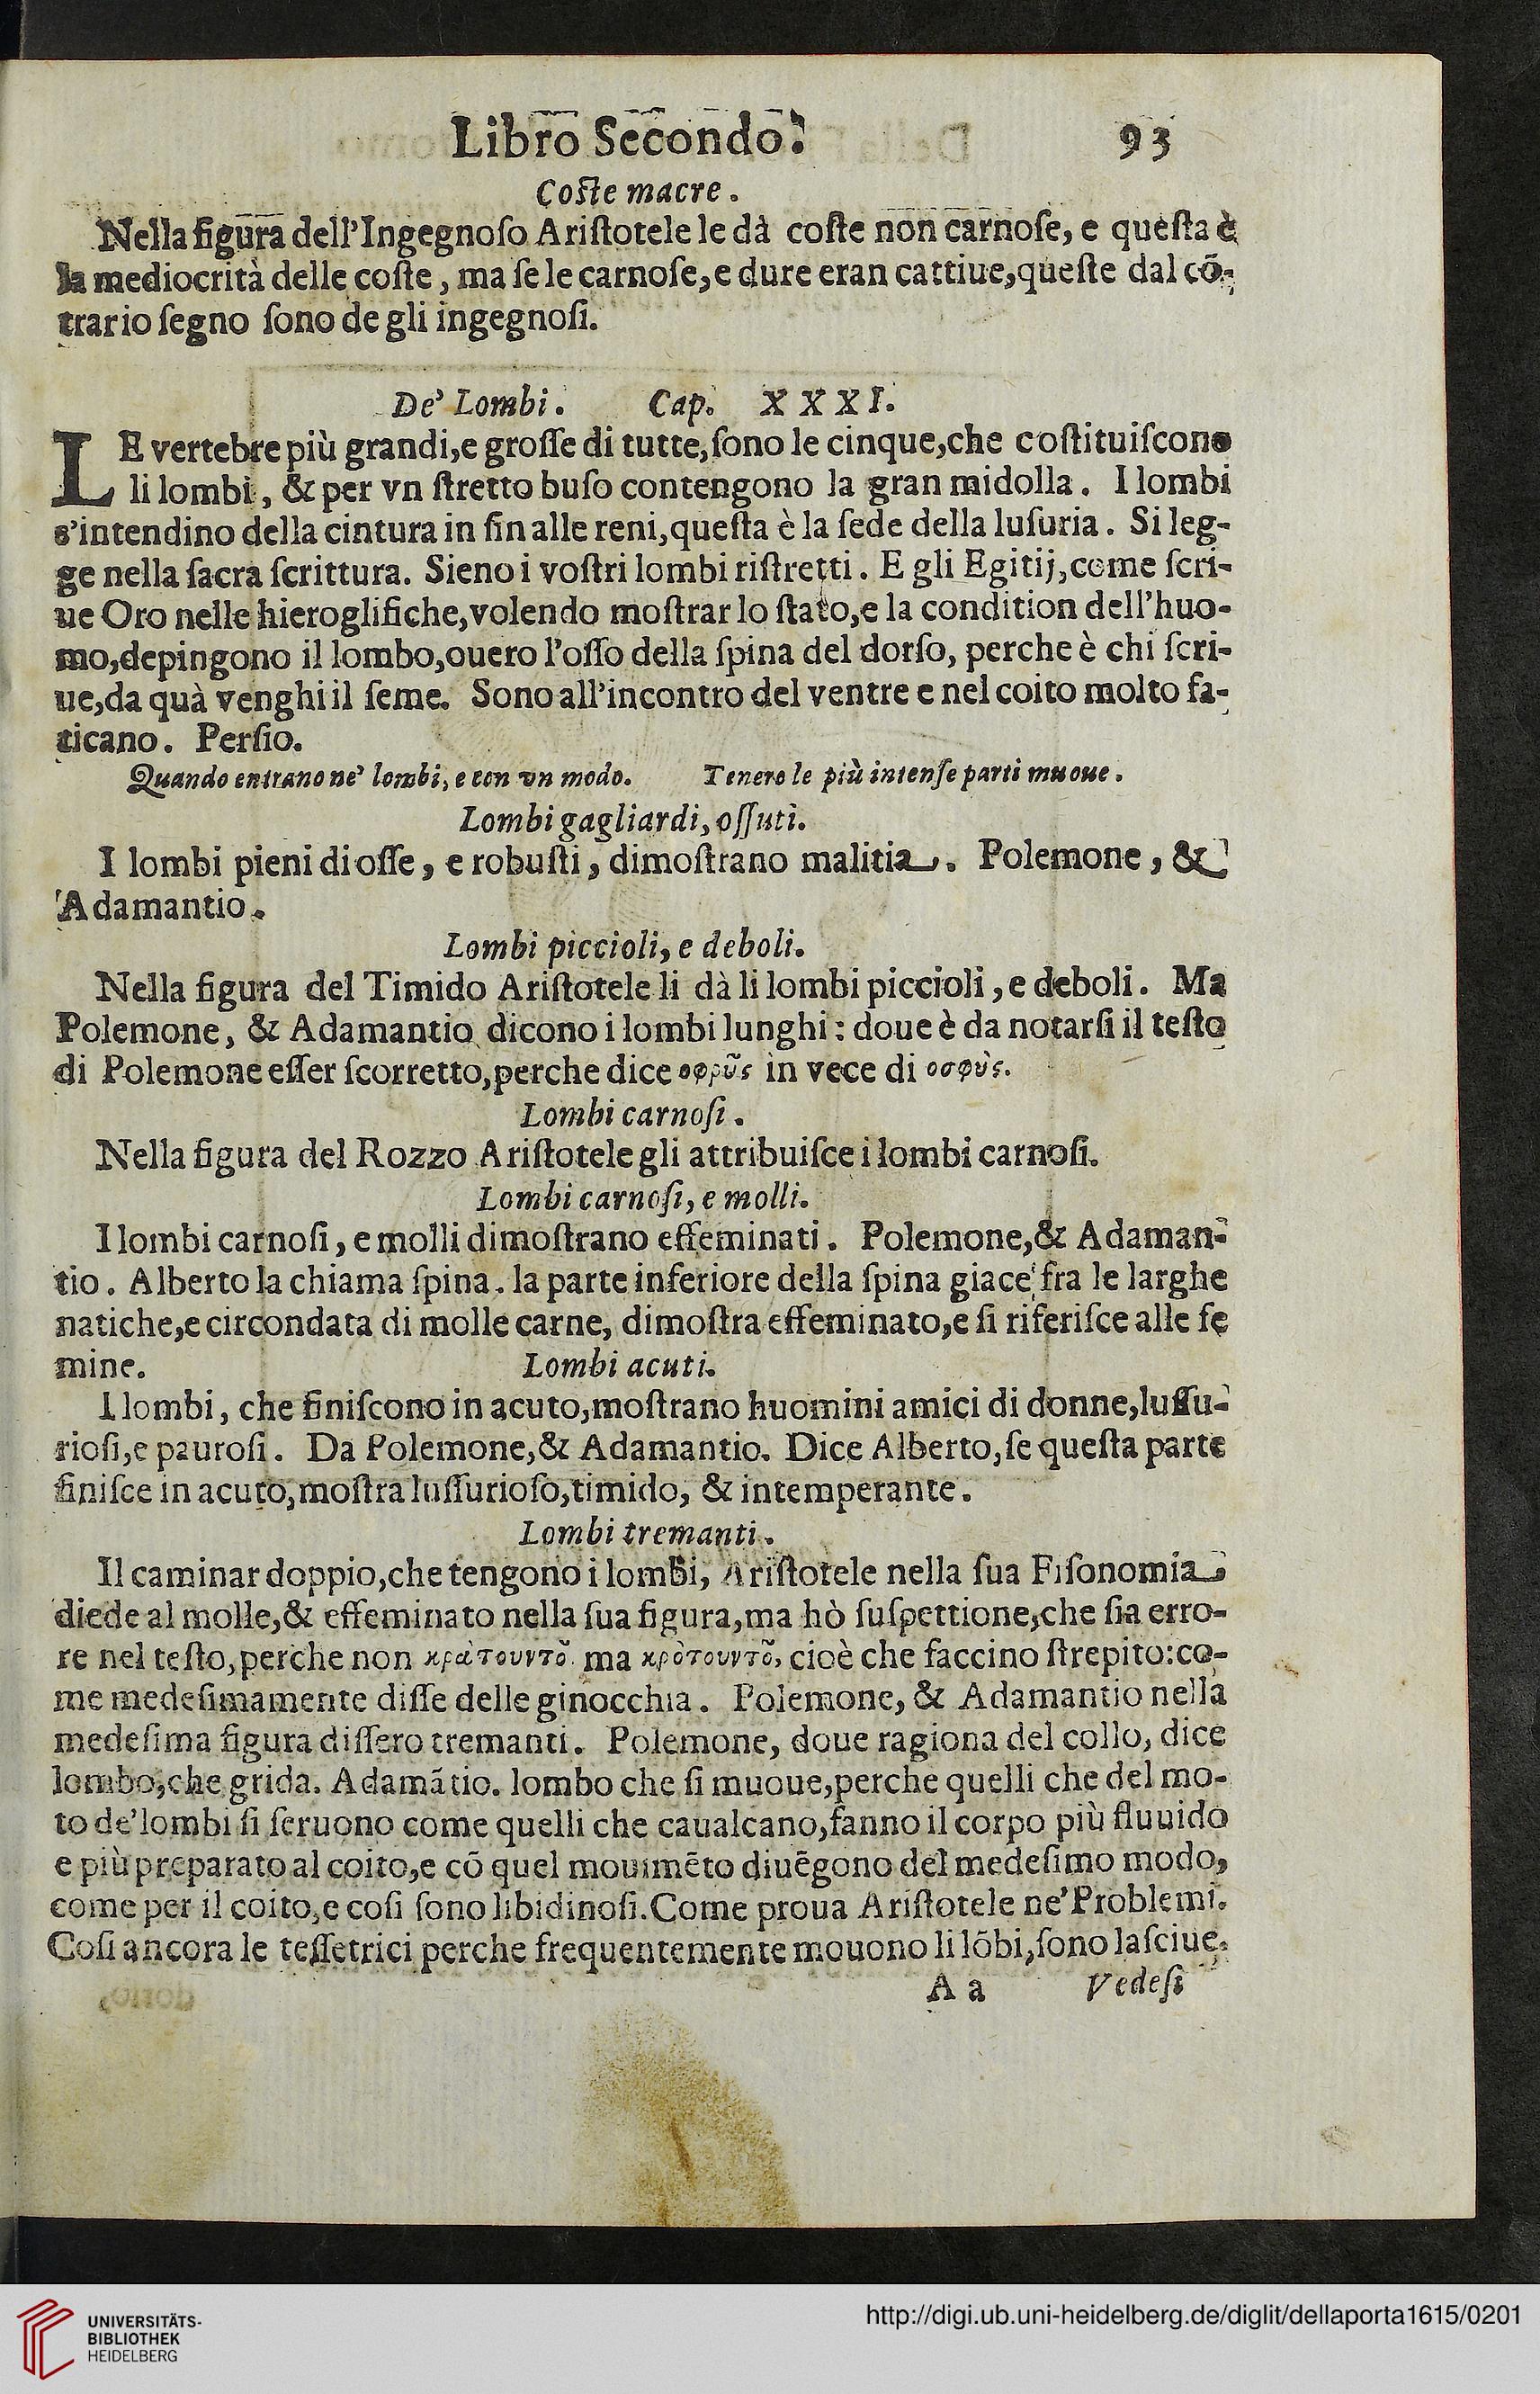 Libro Secondo. 93
Coſte macre.
Nella figura dell'Ingegnoſo Ariſtotele le dà coſte non carnoſe, e queſta è
la mediocrità delle coſte, ma ſe le carnoſe, e dure eran cattiue, queſte dal cõ-
trario ſegno ſono de gli ingegnoſi.
De' Lombi. Cap. XXXI.
LE vertebre più grandi, e groſſe di tutte, ſono le cinque, che coſtituiſcono
li lombi, & per vn ſtretto buſo contengono la gran midolla. I lombi
s'intendino della cintura in fin alle reni, queſta è la ſede della luſuria. Si leg-
ge nella ſacra ſcrittura. Sieno i voſtri lombi riſtretti. E gli Egitij, come ſcri-
ue Oro nelle hieroglifiche, volendo moſtrar lo ſtato, e la condition dell'huo-
mo, depingono il lombo, ouero l'oſſo della ſpina del dorſo, perche è chi ſcri-
ue, da quà venghi il ſeme. Sono all'incontro del ventre e nel coito molto fa-
ticano. Perſio.
Quando entrano ne' lombi, e con vn modo. Tenero le più intenſe parti muoue.
Lombi gagliardi, oſſuti.
I lombi pieni di oſſe, e robuſti, dimoſtrano malitia. Polemone, &
Adamantio.
Lombi piccioli, e deboli.
Nella figura del Timido Ariſtotele li dà li lombi piccioli, e deboli. Ma
Polemone, & Adamantio dicono i lombi lunghi: doue è da notarſi il teſto
di Polemone eſſer ſcorretto, perche dice οφρῦς in vece di οσφὺς.
Lombi carnoſi.
Nella figura del Rozzo Ariſtotele gli attribuiſce i lombi carnoſi.
Lombi carnoſi, e molli.
I lombi carnoſi, e molli dimoſtrano effeminati. Polemone, & Adaman-
tio. Alberto la chiama ſpina. la parte inferiore della ſpina giace fra le larghe
natiche, e circondata di molle carne, dimoſtra effeminato, e ſi riferiſce alle fe
mine. Lombi acuti.
I lombi, che finiſcono in acuto, moſtrano huomini amici di donne, luſſu-
rioſi, e pauroſi. Da Polemone, & Adamantio. Dice Alberto, ſe queſta parte
finiſce in acuto, moſtra luſſurioſo, timido, & intemperante.
Lombi tremanti.
Il caminar doppio, che tengono i lombi, Ariſtotele nella ſua Fiſonomia
diede al molle, & effeminato nella ſua figura, ma hò ſuſpettione, che ſia erro-
re nel teſto, perche non κρὰτουντο̃ ma κρὸτουντο̃, cioè che faccino ſtrepito: co-
me medeſimamente diſſe delle ginocchia. Polemone, & Adamantio nella
medeſima figura diſſero tremanti. Polemone, doue ragiona del collo, dice
lombo, che grida. Adamãtio. lombo che ſi muoue, perche quelli che del mo-
to de' lombi ſi ſeruono come quelli che caualcano, fanno il corpo più fluuido
e più preparato al coito, e cõ quel mouimẽto diuẽgono del medeſimo modo,
come per il coito, e coſi ſono libidinoſi. Come proua Ariſtotele ne' Problemi.
Coſi ancora le teſſetrici perche frequentemente mouono li lõbi, ſono laſciue.
A a Vedeſi
UNIVERSITÄTS-
BIBLIOTHEK
HEIDELBERG
http://digi.ub.uni-heidelberg.de/diglit/dellaporta1615/0201